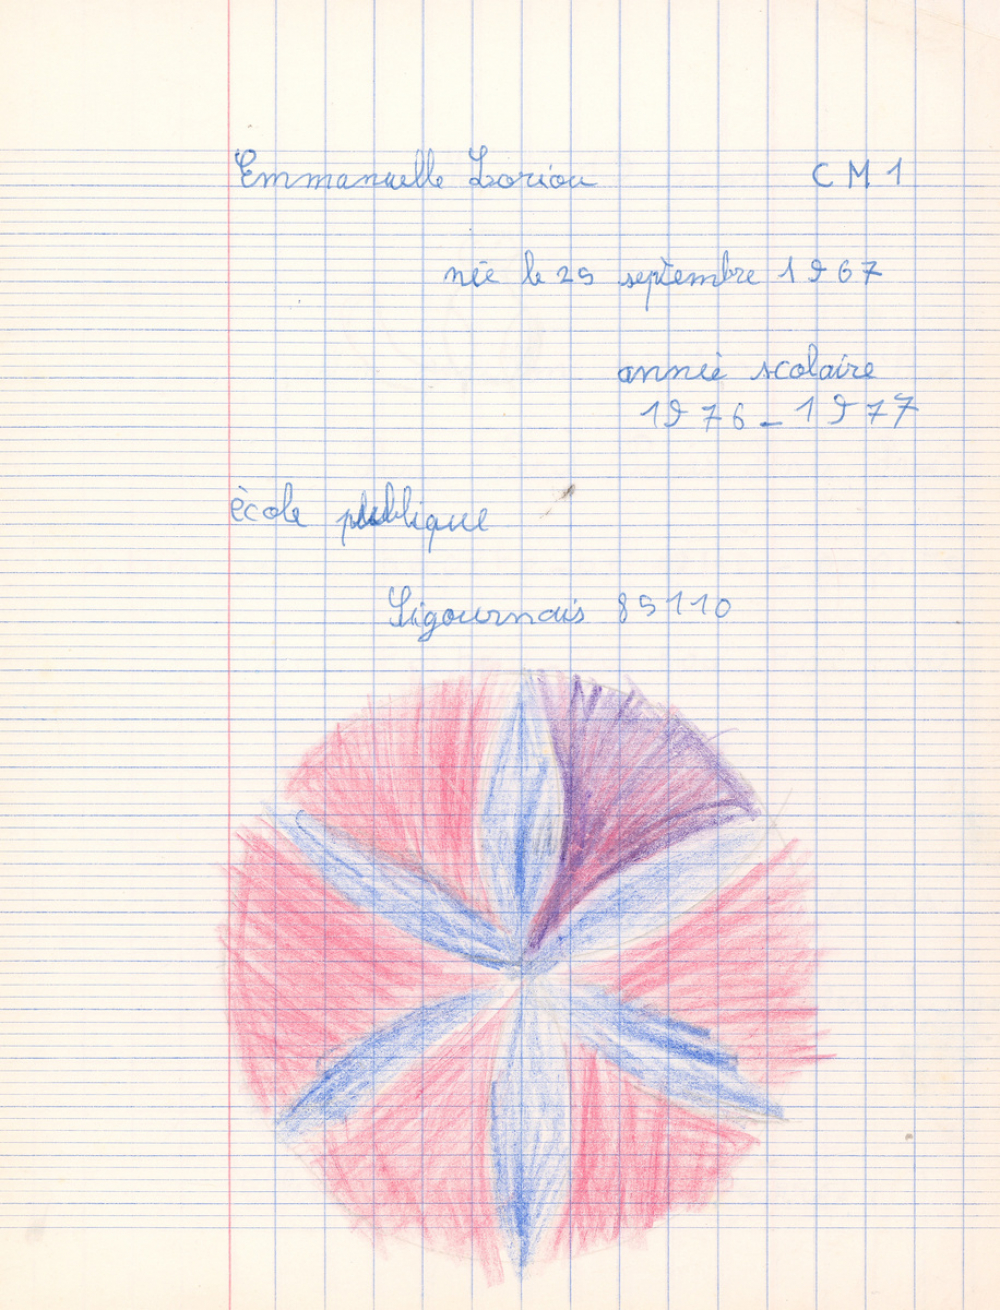 Emmanuelle Loriou CM1
née le 25 septembre 1967
année scolaire
1976_1977
école publique
Sigournais 85110